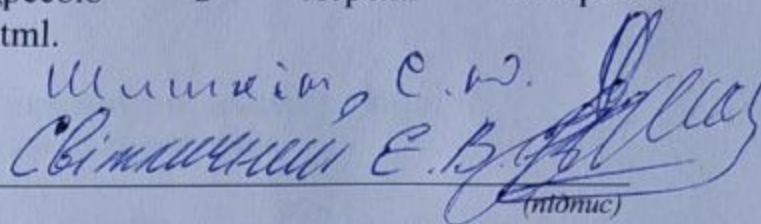 tml.
Шишкін, С. Ю.
Світличний Є. В.
(підпис)